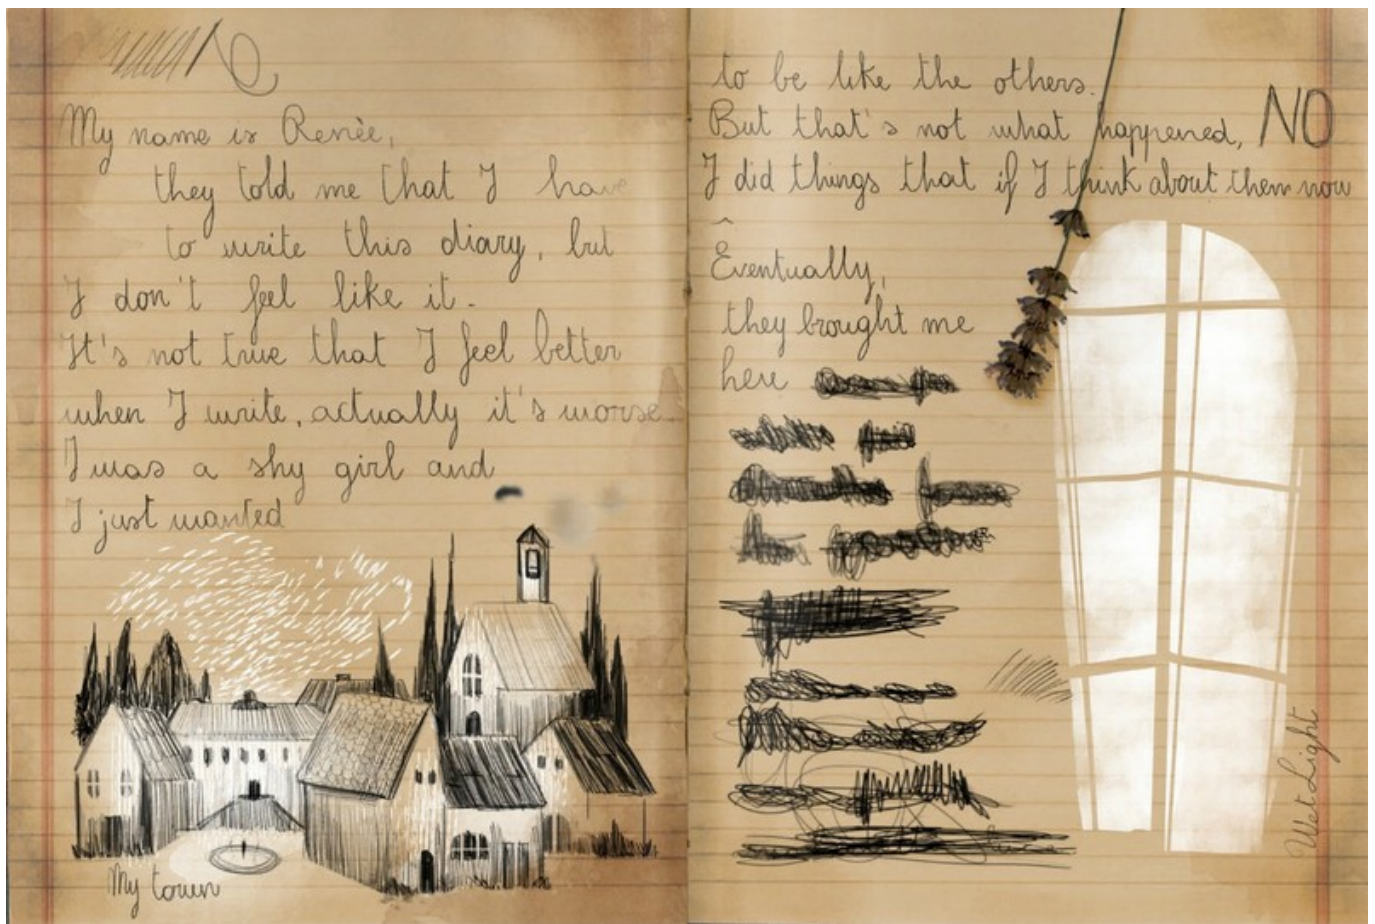 My name is Renèe,
they told me that I have
to write this diary, but
I don't feel like it.
It's not true that I feel better
when I write, actually it's worse.
I was a shy girl and
I just wanted
My town
to be like the others.
But that's not what happened, NO
I did things that if I think about them now
Eventually,
they brought me
here
Wet Light